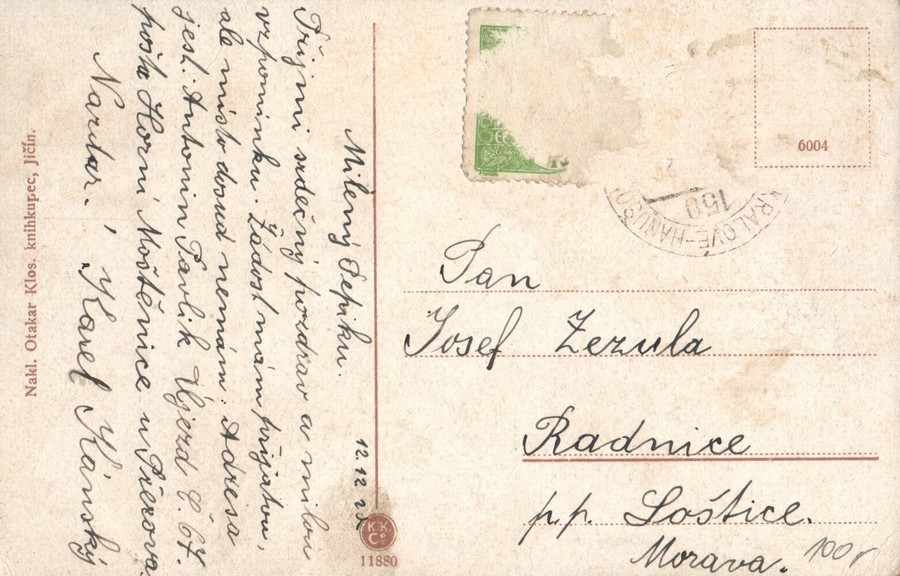 Milený Pepíku.
12. 12. 
Přijmi srdečný pozdrav a milou
vzpomínku. Žádost mám přijatou,
ale místo dosud nemám. Adresa
jest. Antonín Pavlík Újezd č. 67.
pošta Horní Moštěnice u Přerova.
Nazdar. Karel Kánský
Nakl. Otakar Klos. knihkupec, Jičín.
K.K.
Co
11880
6004
KRÁLOVÉ-HANUŠO
150
Pan
Josef Zezula
Radnice
p.p. Loštice.
Morava.
100,-